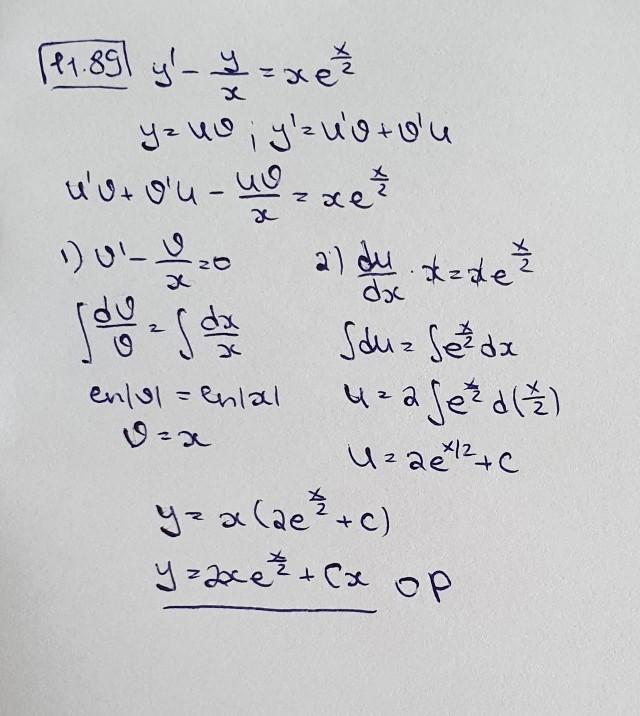 11.89 y' - y/x = xe^(x/2)
y = uv ; y' = u'v + v'u
u'v + v'u - uv/x = xe^(x/2)
1) v' - v/x = 0
∫ dv/v = ∫ dx/x
ln|v| = ln|x|
v = x
2) du/dx · x = xe^(x/2)
∫du = ∫e^(x/2) dx
u = 2∫e^(x/2) d(x/2)
u = 2e^(x/2) + c
y = x(2e^(x/2) + c)
y = 2xe^(x/2) + Cx ОР